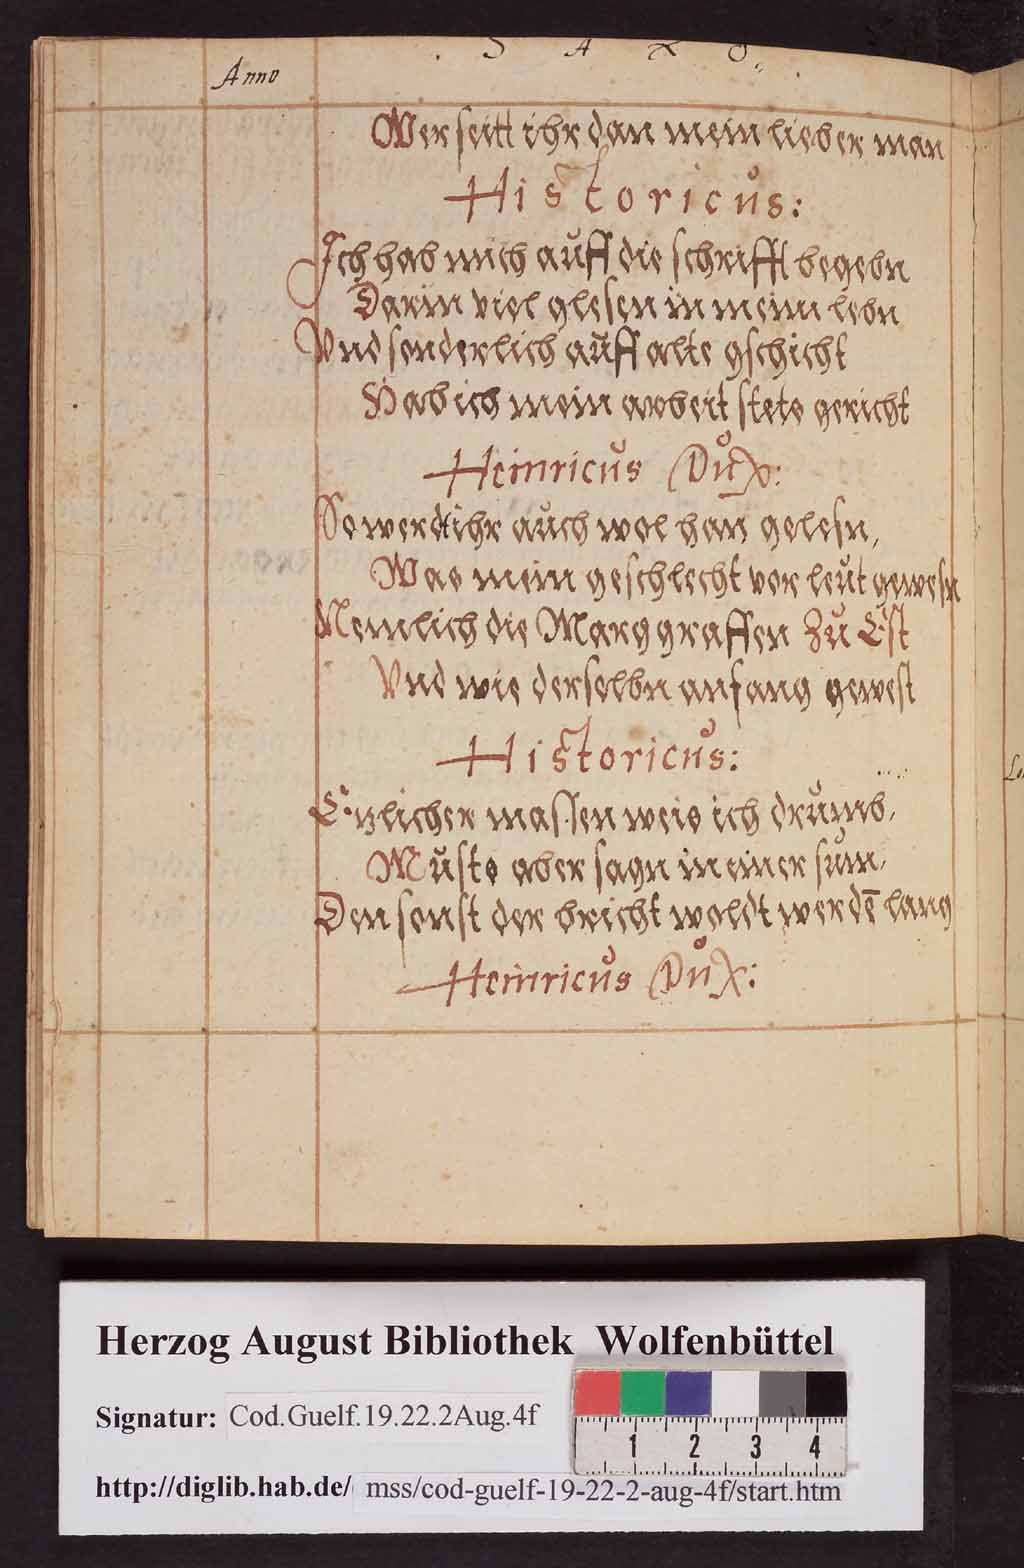 . S A X O.
Anno
Wer seitt ihr dan mein lieber man
Historicus:
Ich hab mich auff die schrifft begebn
Darin viel glesen in meim lebn
Und sonderlich auff alte gschicht
Hab ich mein arbeit stets gericht
Heinricus Dux:
So werdt ihr auch wol han gelesn,
Was mein geschlecht vor leut gewesn
Nemlich die Marggraffen Zu Est
Und wie derselbn anfang gewest
Historicus:
Etzlicher massen weis ich drumb,
Muste aber sagn in einer sum,
Den sonst der bricht woldt werdē lang
Heinricus Dux:
Herzog August Bibliothek Wolfenbüttel
Signatur: Cod.Guelf.19.22.2Aug.4f
1 2 3 4
http://diglib.hab.de/ mss/cod-guelf-19-22-2-aug-4f/start.htm